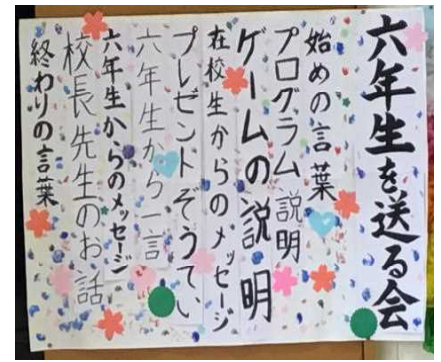 六年生を送る会
始めの言葉
プログラム説明
ゲームの説明
在校生からのメッセージ
プレゼントぞうてい
六年生から一言
六年生からのメッセージ
校長先生のお話
終わりの言葉